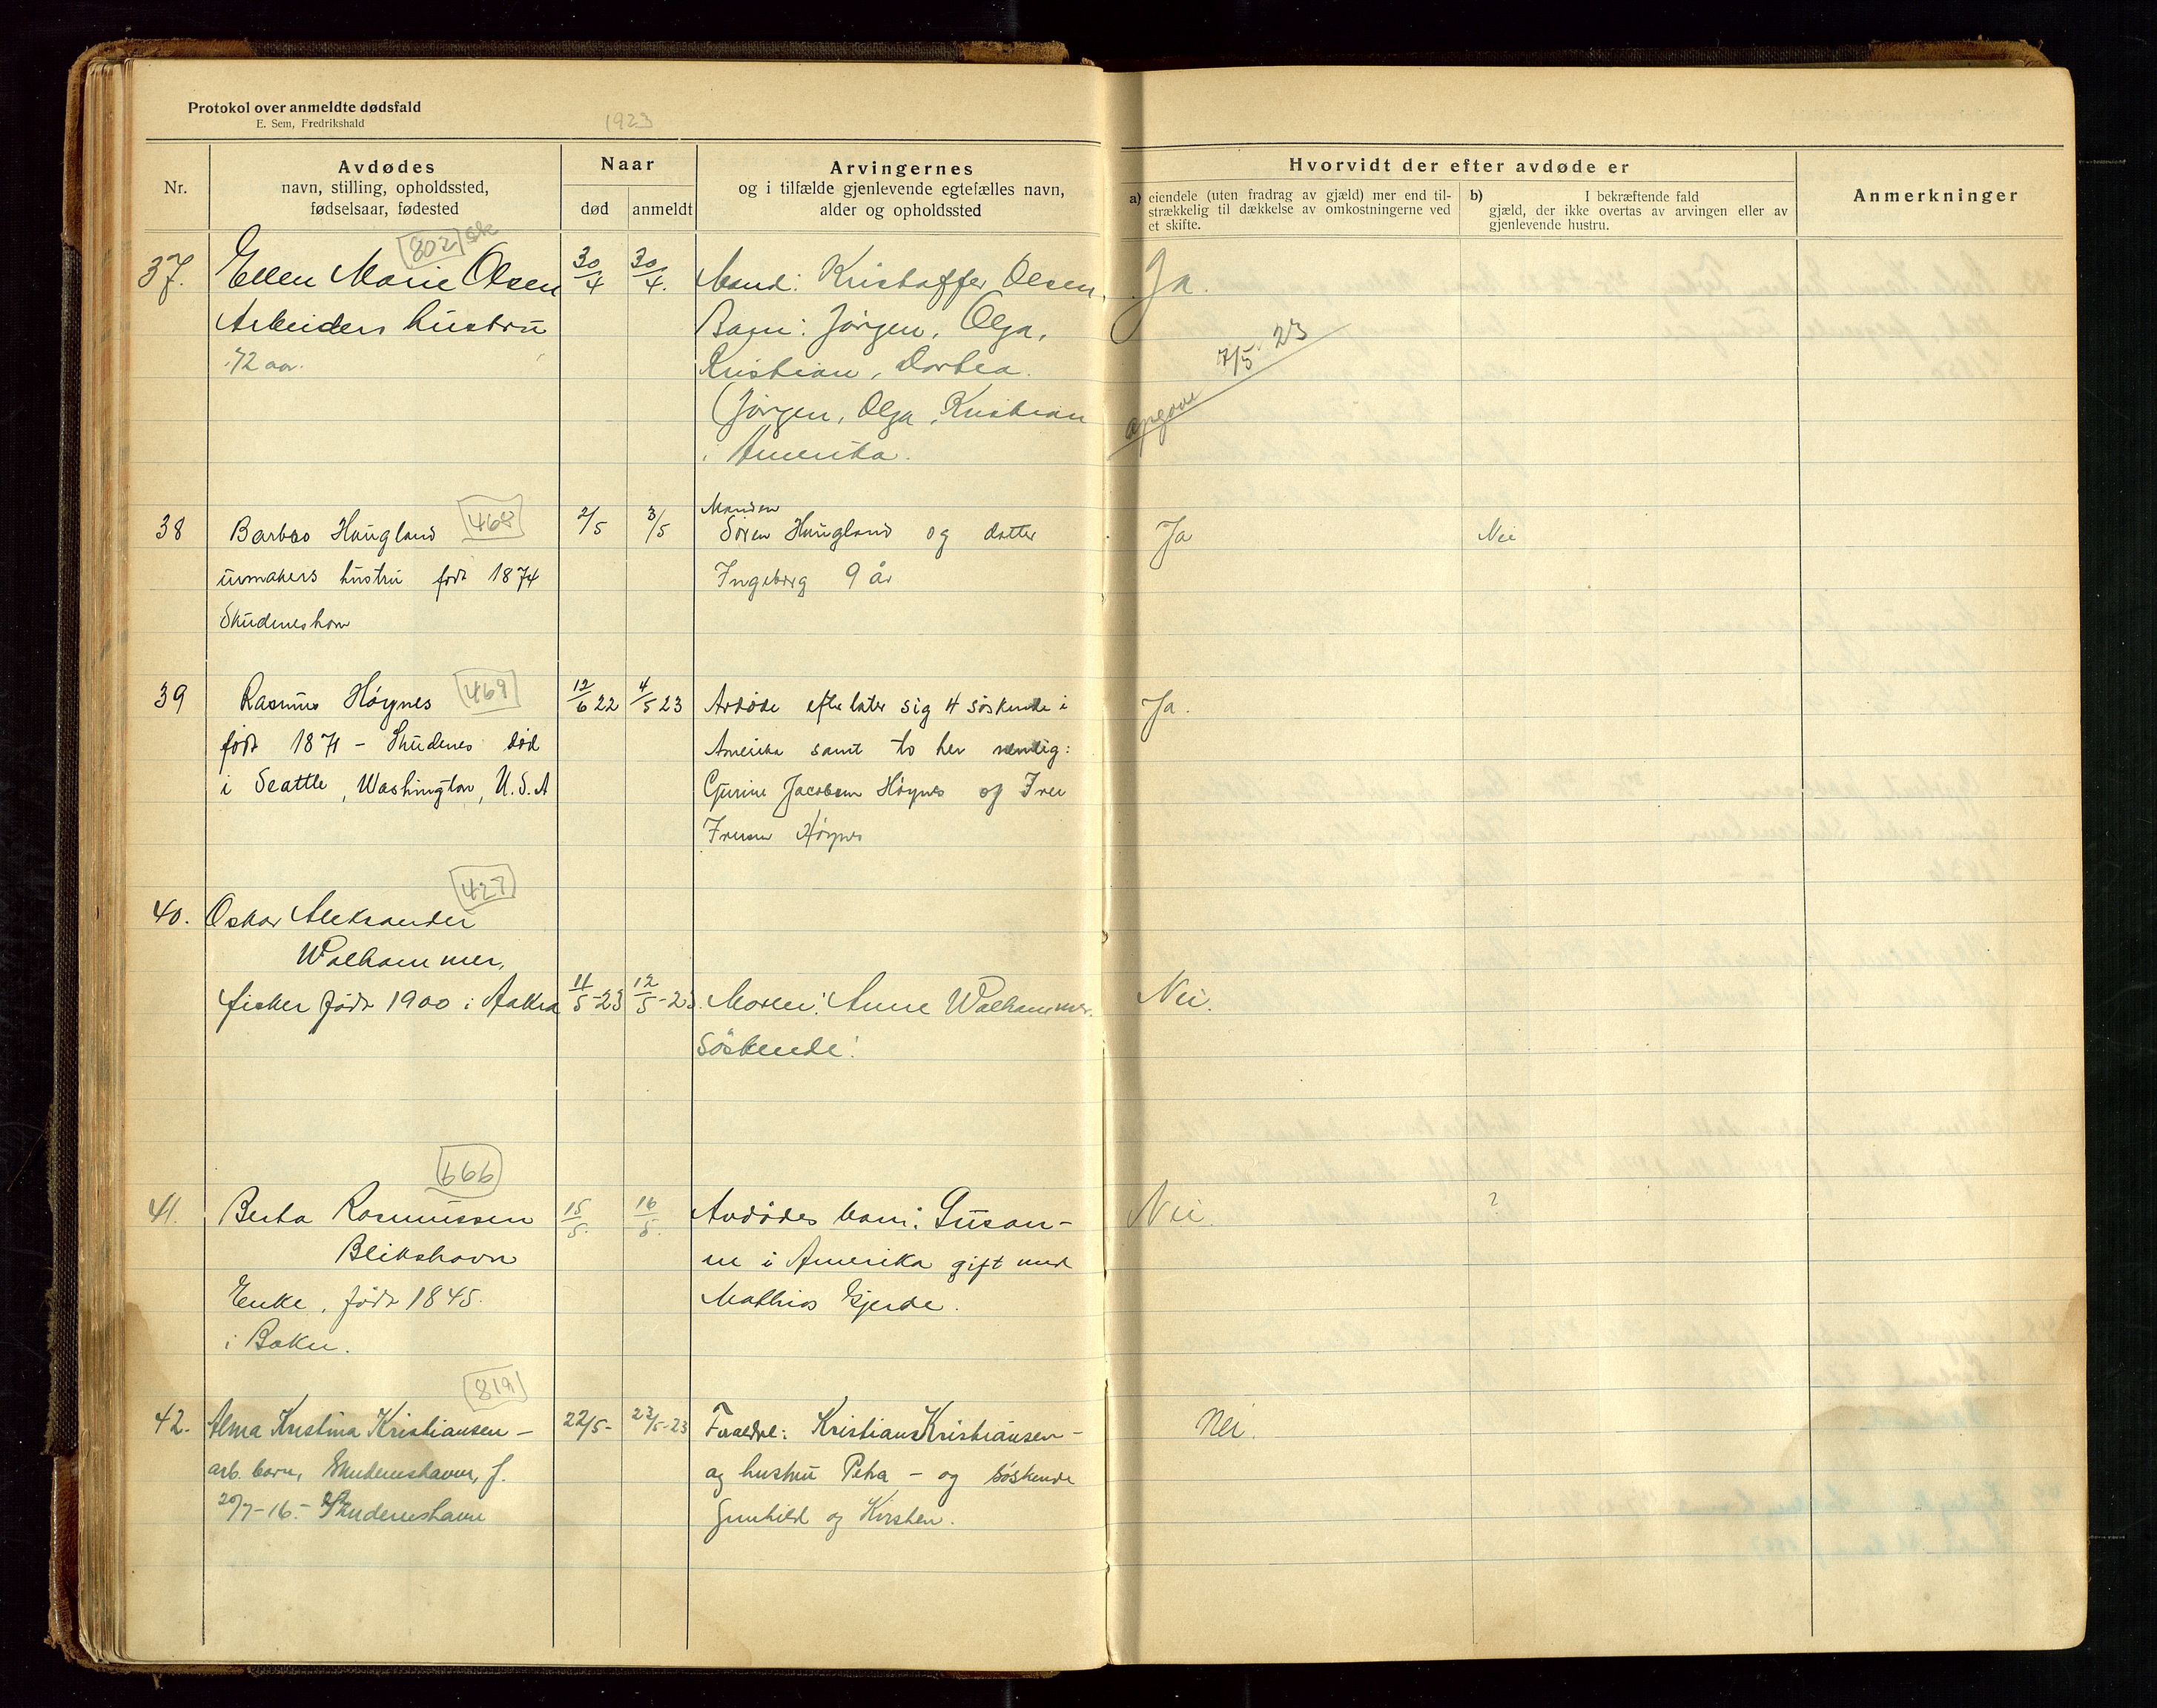 Protokol over anmeldte dødsfald
E. Sem, Fredrikshald
1923
Nr.
Avdødes
navn, stilling, opholdssted,
fødselsaar, fødested
Naar
død
anmeldt
Arvingernes
og i tilfælde gjenlevende egtefælles navn,
alder og opholdssted
Hvorvidt der efter avdøde er
a) eiendele (uten fradrag av gjæld) mer end til-
strækkelig til dækkelse av omkostningerne ved
et skifte.
b) I bekræftende fald
gjæld, der ikke overtas av arvingen eller av
gjenlevende hustru.
Anmerkninger
802 sk
37. Ellen Marie Olsen 30/4 30/4. Mand: Kristoffer Olsen, Ja.
Arbeiders hustru Barn: Jørgen, Olga,
72 aar. Kristian, Dortea.
(Jørgen, Olga, Kristian
i Amerika.
opgave 7/5 23
468
Manden
38 Barbro Haugland 2/5 3/5 Søren Haugland og datter Ja Nei
urmakers hustru født 1874 Ingeborg 9 år
Skudeneshavn
469
39 Rasmus Høynes 12/6 22 4/5 23 Avdøde efterlater sig 4 søskende i Ja.
født 1871 - Skudenes død Amerika samt to her nemlig:
i Seattle, Washington, U.S.A Gurine Jacobsen Høynes og Iver
Iversen Høynes
427
40. Oskar Aleksander
Walhammer,
fisker født 1900 i Aakra 11/5-23 12/5-23. Moren: Anne Walhammer. Nei.
Søskende:
666
41. Berta Rasmussen 15/5. 16/5. Avdødes barn: Susan- Nei. ?
Blikshavn ne i Amerika gift med
Enke, født 1845. Mathias Gjerde.
i Bokn.
819
42. Alma Kristina Kristiansen - 22/5- 23/5-23 Foraeldre: Kristian Kristiansen - Nei.
arb. barn, Skudeneshavn, f. og hustru Petra - og søskende
20/7-16. - Skudeneshavn Gunhild og Kirsten.